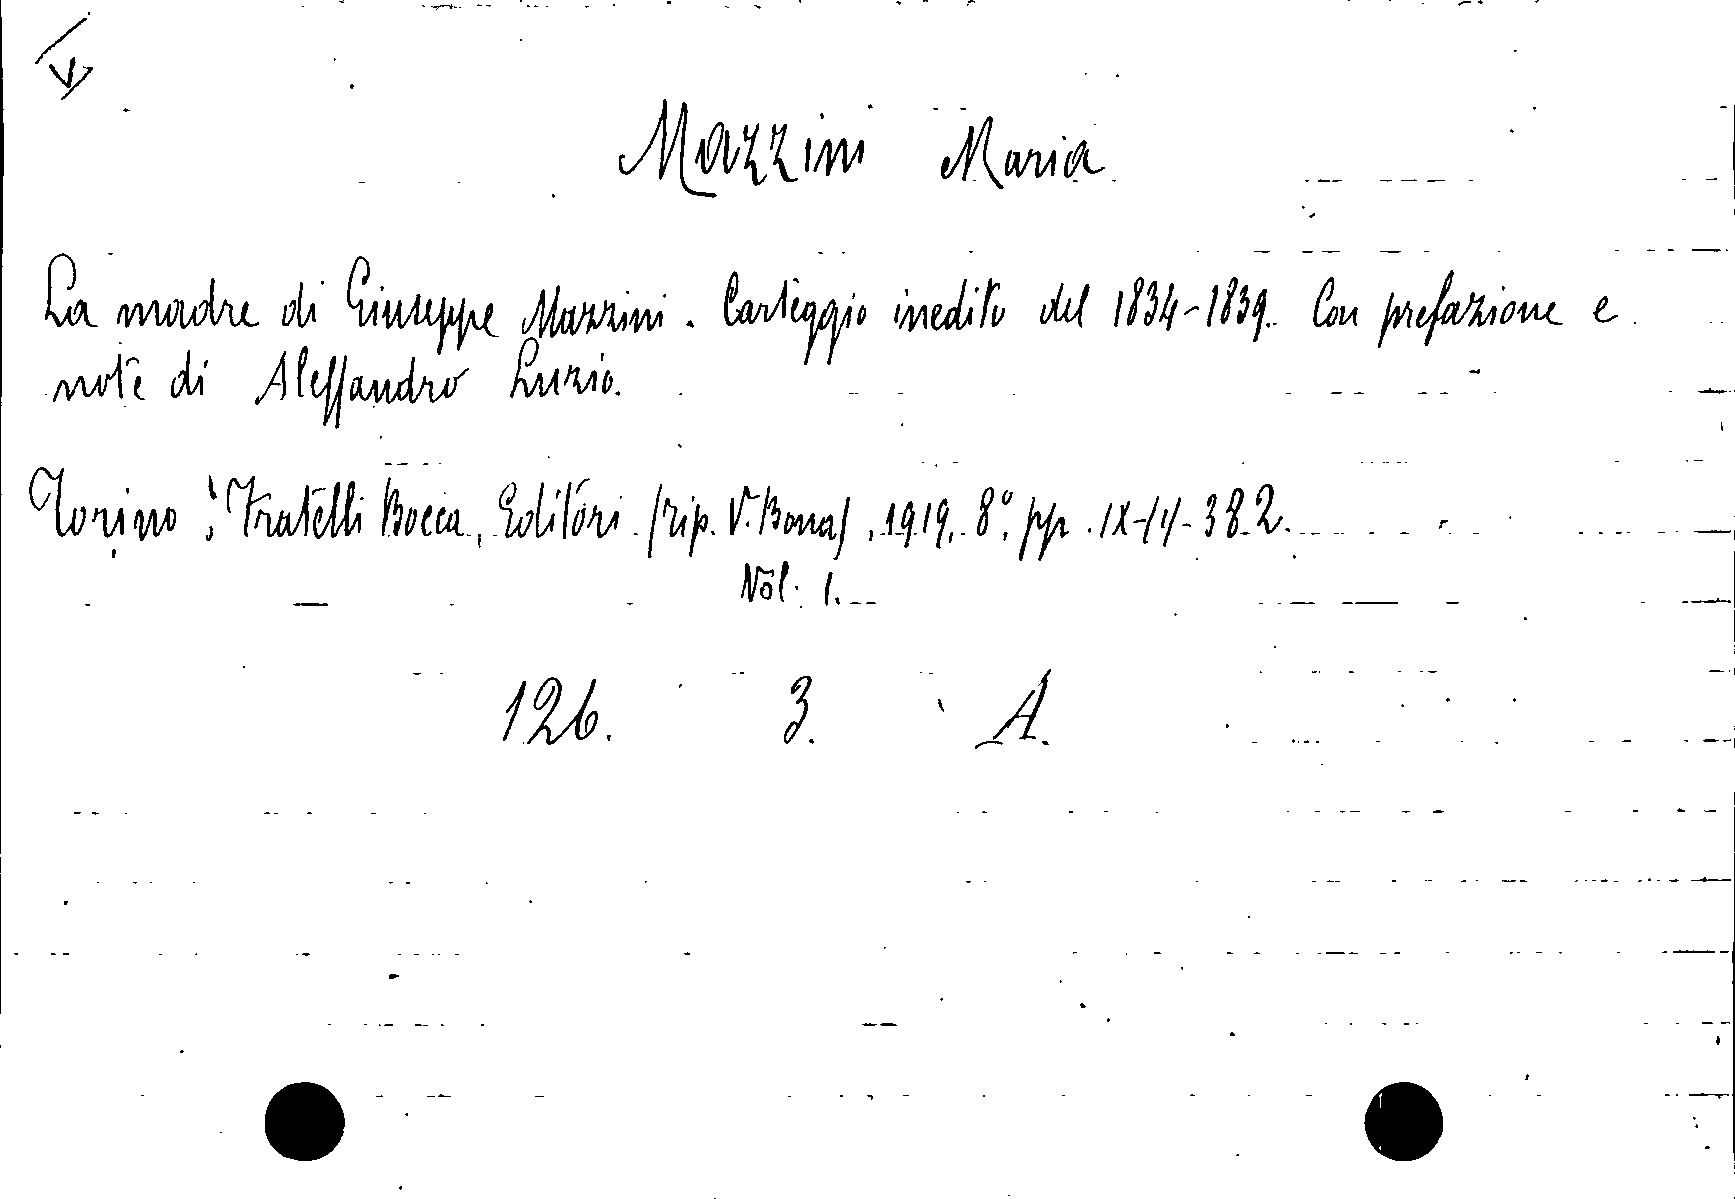 Mazzini Maria
La madre di Giuseppe Mazzini. Carteggio inedito del 1834-1839. Con prefazione e
note di Alessandro Luzio.
Torino, Fratelli Bocca, Editori (Tip. V. Bona), 1919, 8°, pp. IX-(1)-382.
Vol. 1.
126. 3. A.